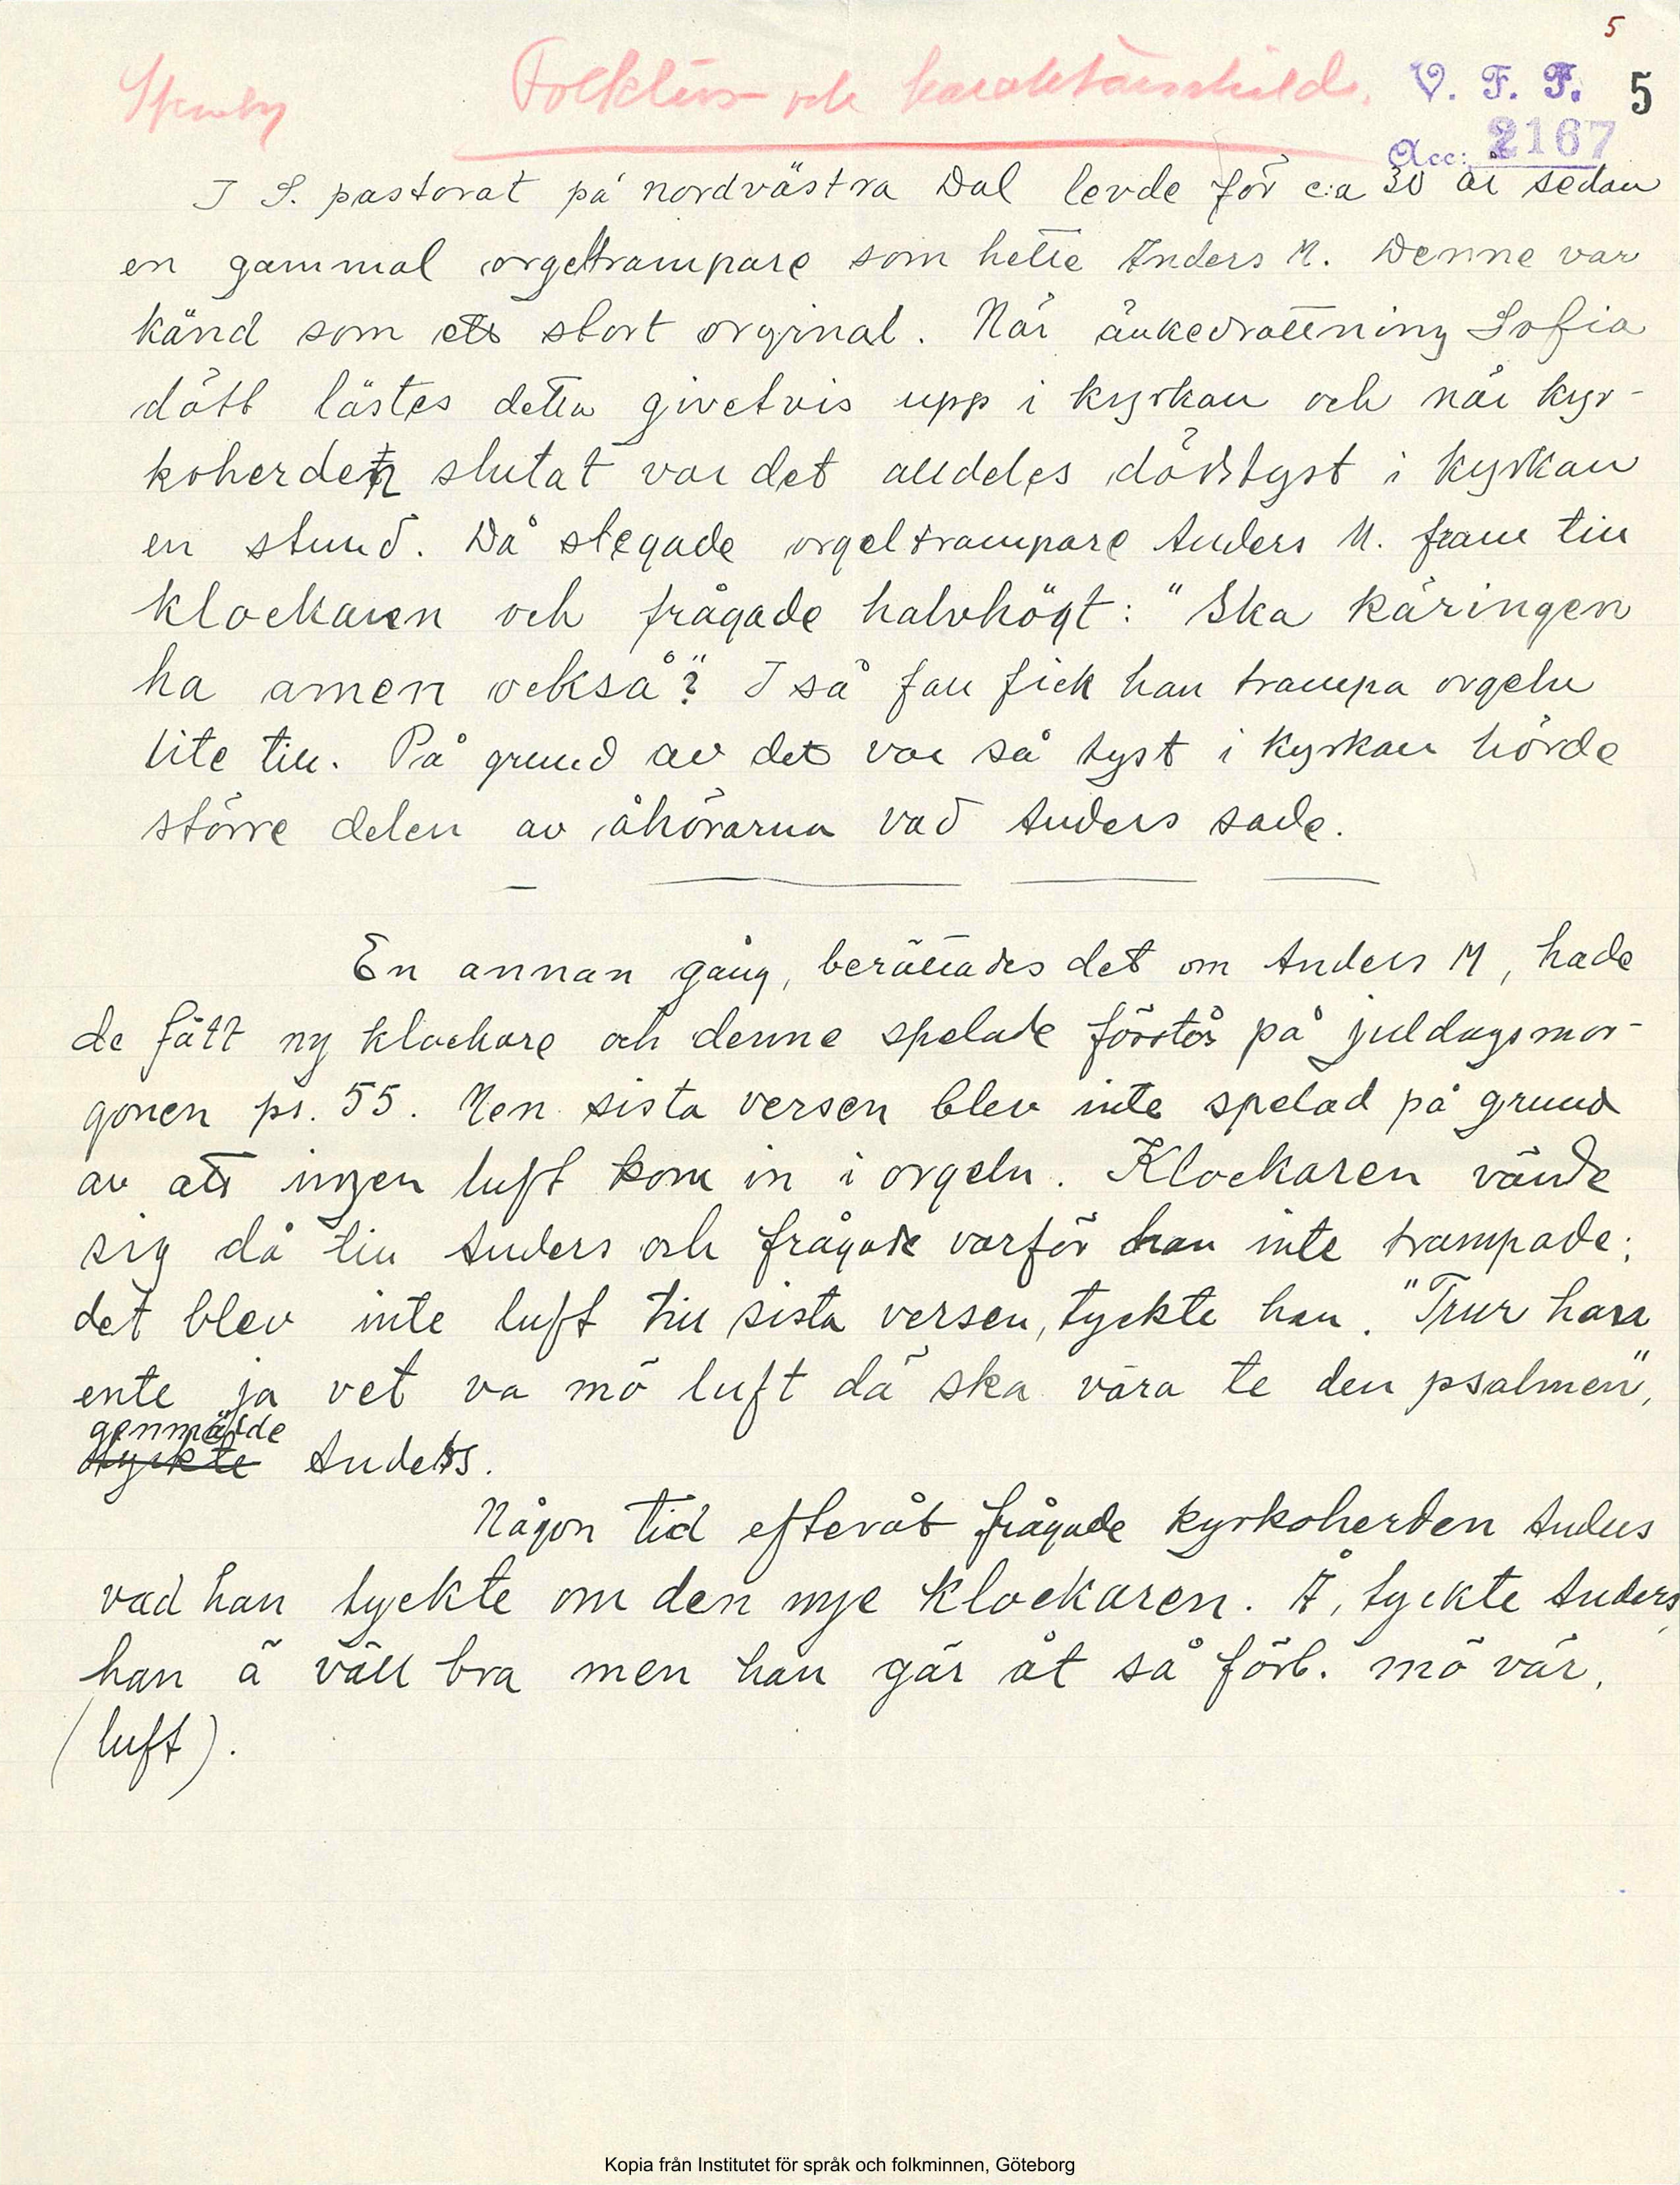 5
Folktyper och karaktärsskild.
V. F. F. 5
Acc: 2167
I S. pastorat på nordvästra Dal levde för c:a 30 år sedan
en gammal orgeltrampare som hette Anders M. Denne var
känd som ett stort orginal. När änkedrottning Sofia
dött lästes detta givetvis upp i kyrkan och när kyr-
koherden slutat var det alldeles dödstyst i kyrkan
en stund. Då stegade orgeltrampare Anders M. fram till
klockaren och frågade halvhögt: "Ska käringen
ha amen också"? I så fall fick han trampa orgeln
lite till. På grund av det var så tyst i kyrkan hörde
större delen av åhörarna vad Anders sade.
En annan gång, berättades det om Anders M, hade
de fått ny klockare och denne spelade förstås på juldagsmor-
gonen ps. 55. Men sista versen blev inte spelad på grund
av att ingen luft kom in i orgeln. Klockaren vände
sig då till Anders och frågade varför han inte trampade;
det blev inte luft till sista versen, tyckte han. "Trur han
ente ja vet va mö luft dä ska vara te den psalmen",
genmälde
tyckte Anders.
Någon tid efteråt frågade kyrkoherden Anders
vad han tyckte om den nye klockaren. Å, tyckte Anders,
han ä väll bra men han går åt så förb. mö vär,
(luft).
Kopia från Institutet för språk och folkminnen, Göteborg